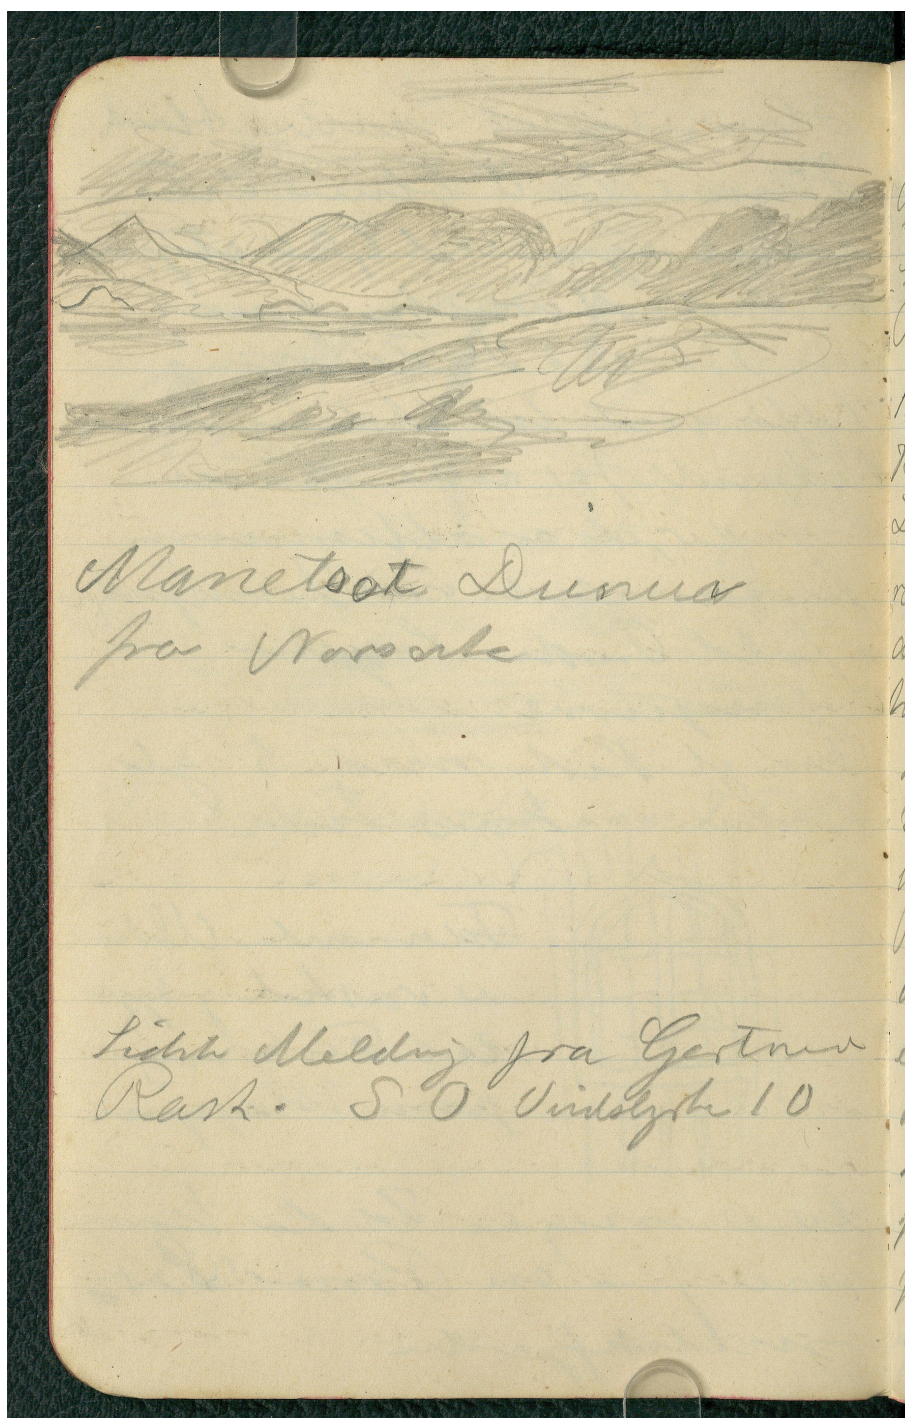 Manetsat Dunua
fra Norsak
Sidste Melding fra Gartner
Rask. S O Vindstyrke 10